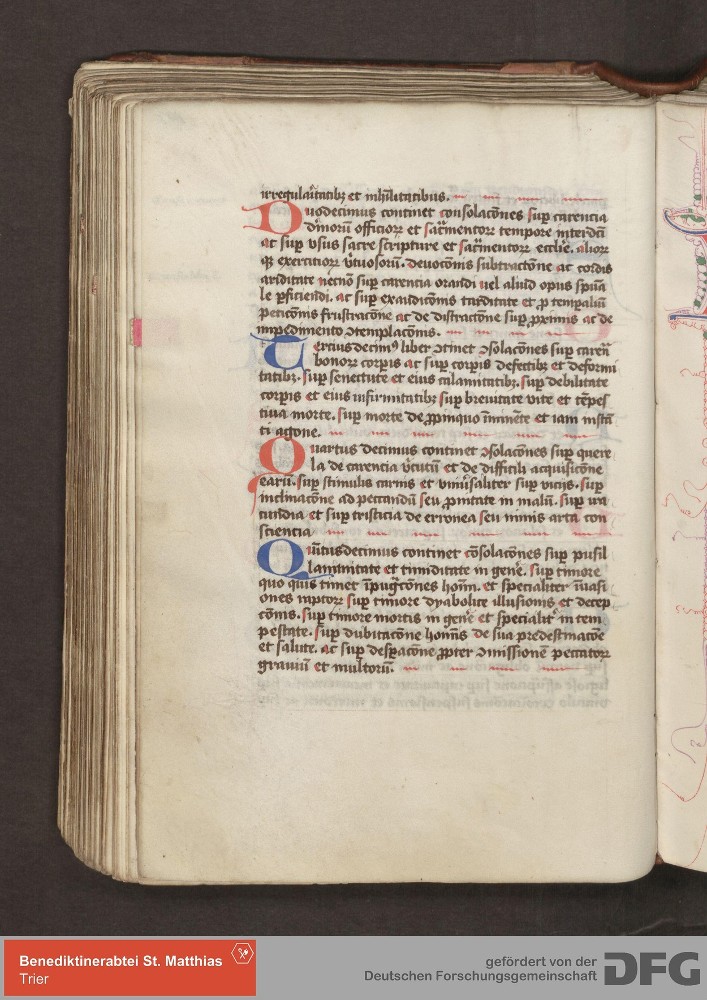 irregularitatibꝫ et inhabilitatibus.
Duodecimus continet consolacōnes suꝑ carencia
diuinoꝝ officioꝝ et sac̄mentoꝝ tempore interdc̄i
ac suꝑ vsus sacre scripture et sac̄mentoꝝ ecclīe. alioꝝ
qꝫ exercitioꝝ v̓tuosoꝝ. deuocōnis subtractōne ac cordis
ariditate necnō suꝑ carencia orandi uel aliud opus spūa
le ꝑficiendi. ac suꝑ exaudicōnis tarditate et ꝓ tempaliū
peticōnis frustracōne ac de distractōne suꝑ ꝓximis ac de
impedimento ꝯtemplacōnis.
Tercius decimꝰ liber ꝯtinet ꝯsolacōnes suꝑ caren̄
bonoꝝ corꝑis ac suꝑ corꝑis defectibꝫ et deformi
tatibꝫ. suꝑ senectute et eius calamitatibꝫ. suꝑ debilitate
corꝑis et eius infirmitatibꝫ suꝑ breuitate vite et tēpes
tiua morte. suꝑ morte de ꝓpinquo īminēte et iam instā
ti agone.
Quartus decimus continet ꝯsolacōnes suꝑ quere
la de carencia v̓tutū et de difficili acquisicōne
earū. suꝑ stimulis carnis et vniu̓saliter suꝑ vicijs. suꝑ
inclinacōne ad peccandū seu ꝓnitate in malū. suꝑ ira
cundia et suꝑ tristicia de erronea seu nimis arta con
sciencia
Quītusdecimus continet cōsolacōnes suꝑ pusil
lanimitate et timiditate in gen̄e. suꝑ timore
quo quis timet īpugc̄ōnes hoīm. et specialiter īuasi
ones raptoꝝ suꝑ timore dyabolice illusionis et decep
cōnis. suꝑ timore mortis in gen̄e et specialit̓ in tem
pestate. suꝑ dubitacōne hoīnis de sua predestinacōe
et salute. ac suꝑ desꝑacōne ꝓpter ꝯmissionē peccatoꝝ
grauiū et multorū.
Benediktinerabtei St. Matthias
Trier
gefördert von der
Deutschen Forschungsgemeinschaft
DFG